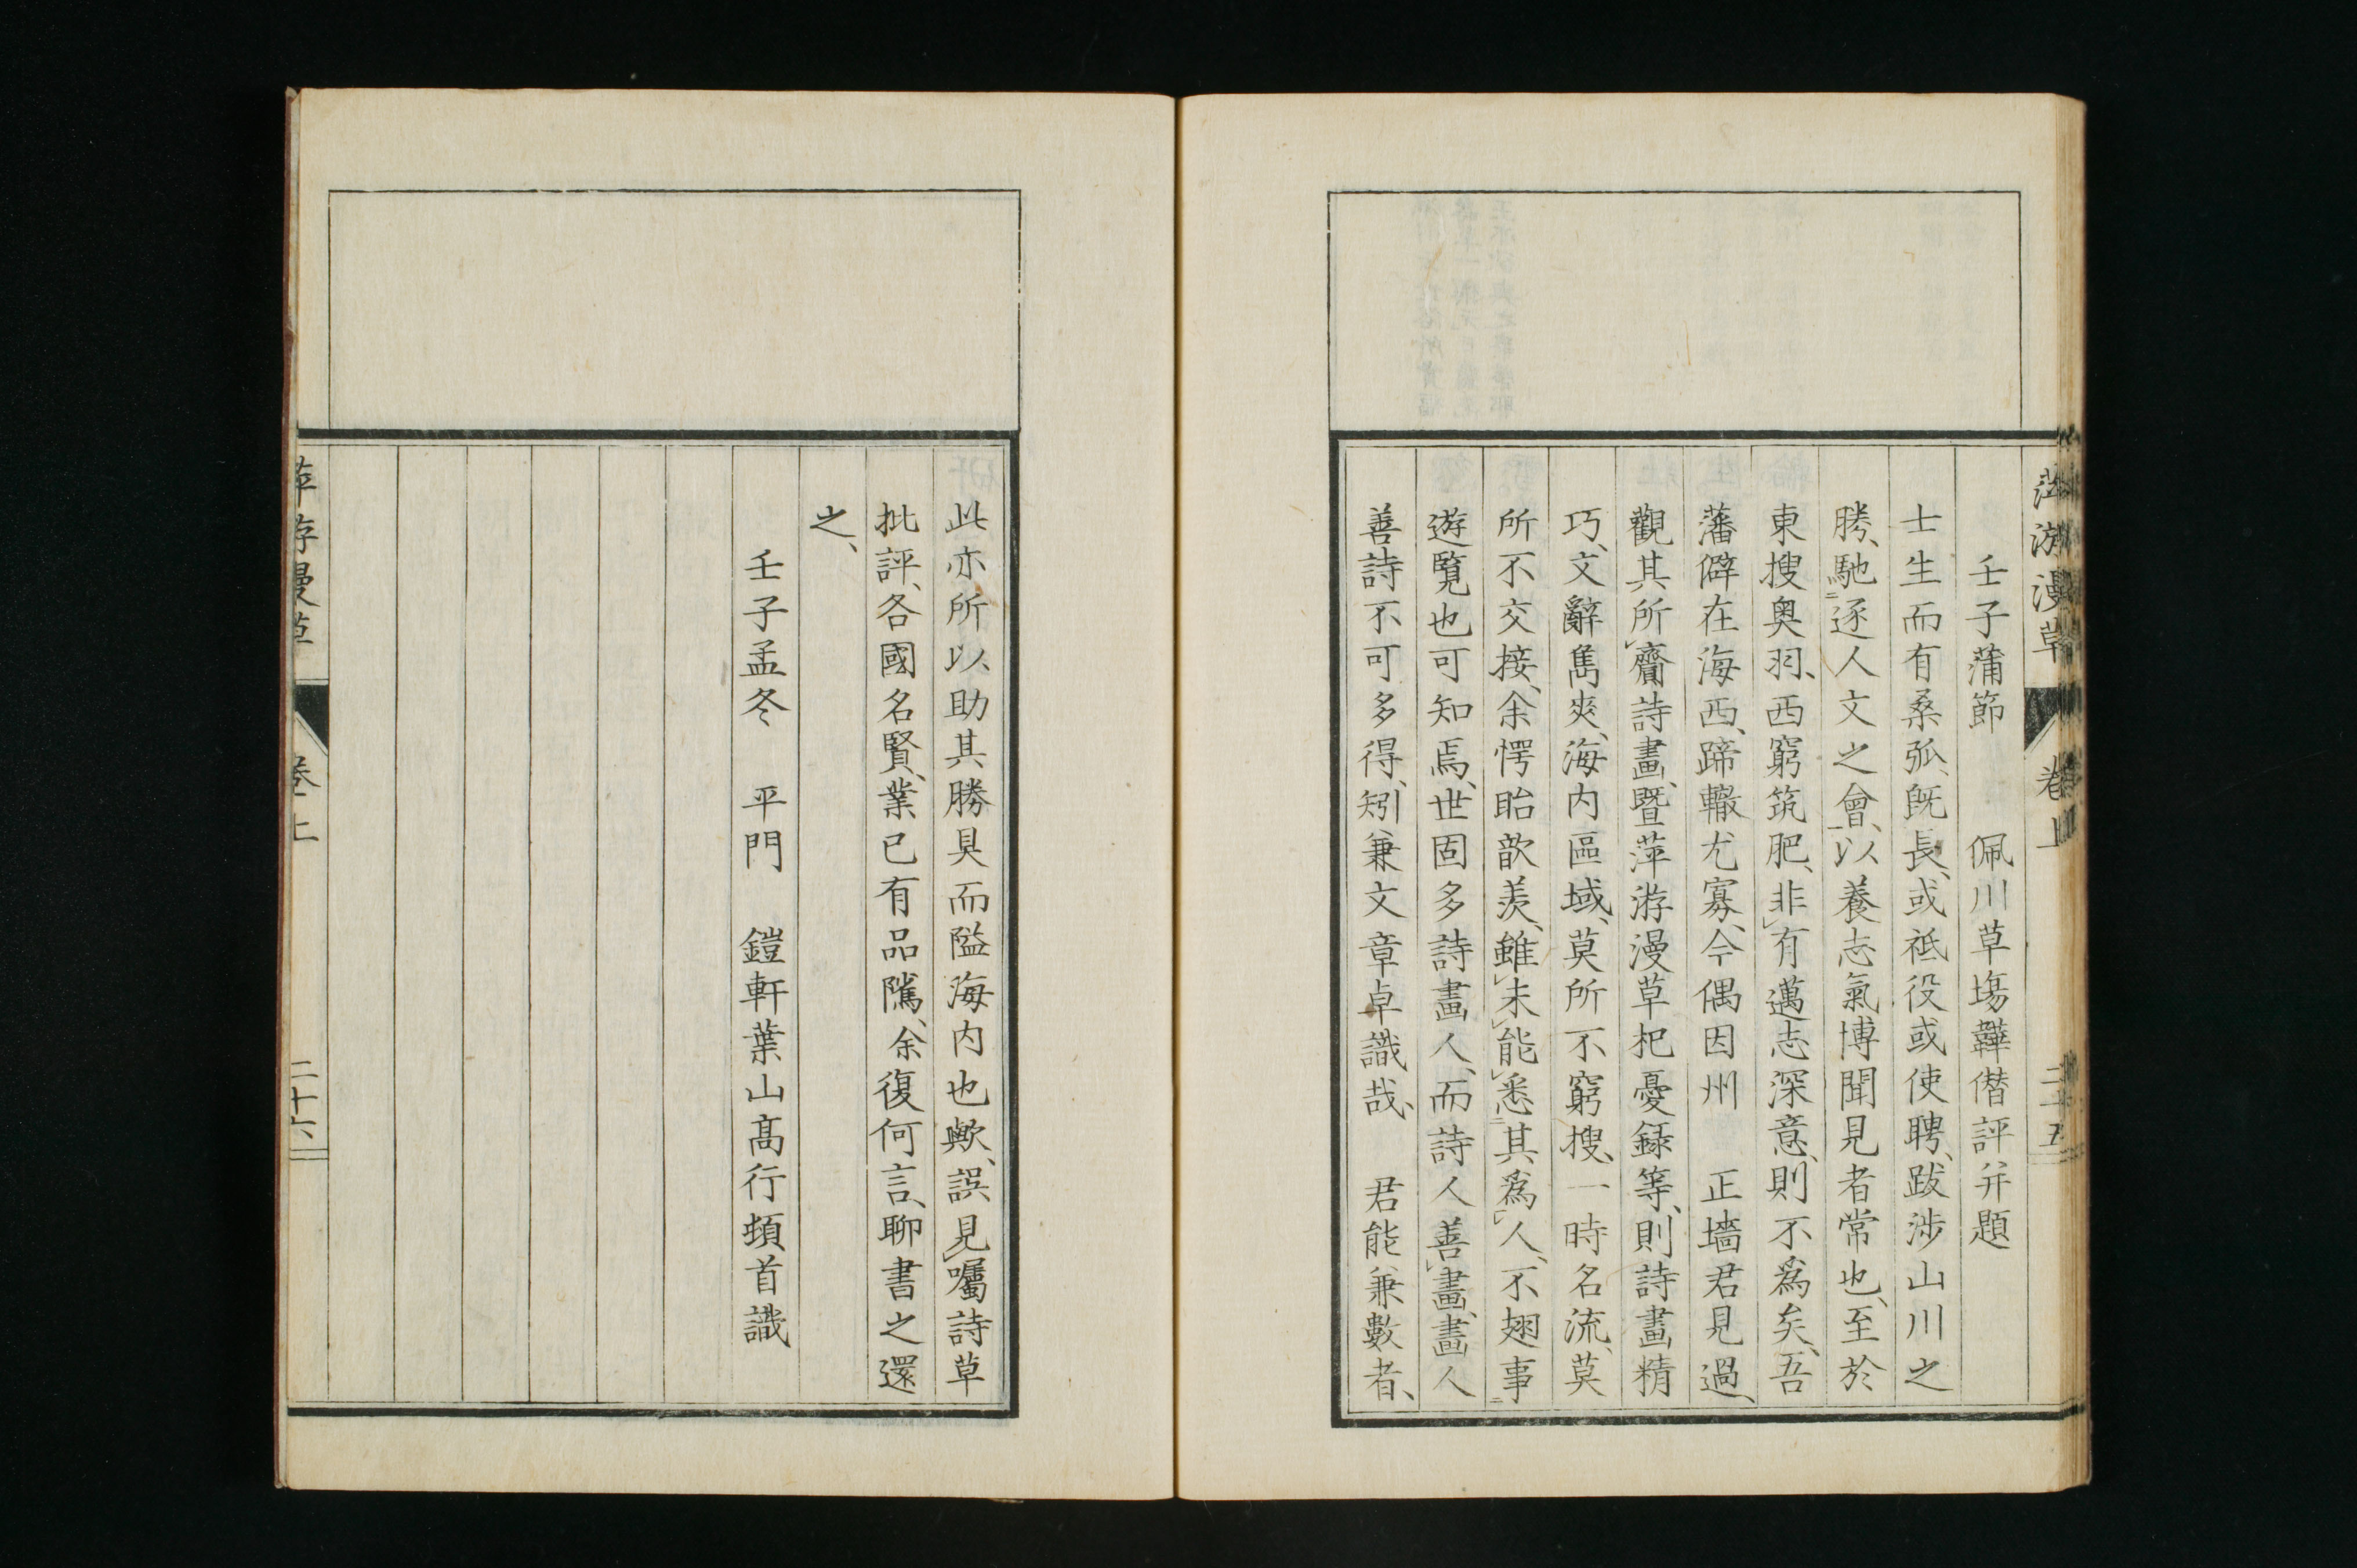 萍游漫草 卷上 二十五
壬子蒲節 佩川草場韡僭評并題
士生而有桑弧、既長、或祗役或使聘、跋涉山川之
勝、馳逐人文之會、以養志氣博聞見者常也、至於
東搜奥羽、西窮筑肥、非有邁志深意、則不爲矣、吾
藩僻在海西、蹄轍尤寡、今偶因州 正墻君見過、
觀其所齎詩畫、曁萍游漫草杞憂録等、則詩畫精
巧、文辭雋爽、海内區域、莫所不窮搜、一時名流、莫
所不交接、余愕眙歆羨、雖未能悉其爲人、不翅事
遊覧也可知焉、世固多詩畫人、而詩人善畫、畫人
善詩不可多得、矧兼文章卓識哉、 君能兼數者、
此亦所以助其勝具而隘海内也歟、誤見囑詩草
批評、各國名賢、業已有品隲、余復何言、聊書之還
之、
壬子孟冬 平門 鎧軒葉山髙行頓首識
萍游漫草 卷上 二十六